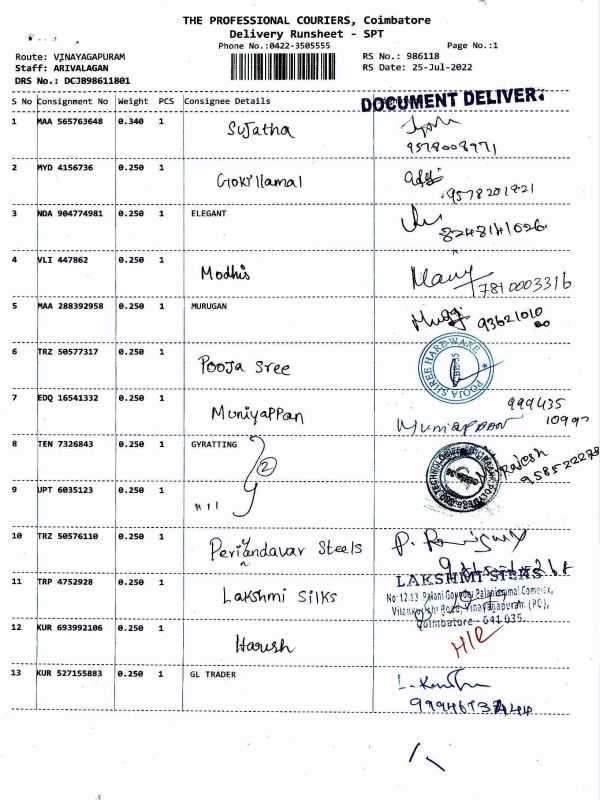 THE PROFESSIONAL COURIERS, Coimbatore
Delivery Runsheet - SPT
Phone No.:0422-3505555
Page No.:1
Route: VINAYAGAPURAM
RS No.: 986118
Staff: ARIVALAGAN
RS Date: 25-Jul-2022
DRS No.: DCJB98611801
S No Consignment No Weight PCS Consignee Details
DOCUMENT DELIVER
1 MAA 565763648 0.340 1 Sujatha
9578008971
2 MYD 4156736 0.250 1 Gokillamal
9578201821
3 NDA 904774981 0.250 1 ELEGANT
8248141026
4 VLI 447862 0.250 1 Modhis
7810003316
5 MAA 288392958 0.250 1 MURUGAN
93621010
6 TRZ 50577317 0.250 1 Pooja Sree
POOJA SHREE HARDWARE
7 EDQ 16541332 0.250 1 Muniyappan
Muniappan 999435
10997
8 TEN 7326843 0.250 1 GYRATTING
2
Rajesh
9 UPT 6035123 0.250 1
10 TRZ 50576110 0.250 1 Periyandavar Steels
11 TRP 4752928 0.250 1 Lakshmi Silks
LAKSHMI SILKS
Vinayagapuram (PO),
Coimbatore - 641 035.
12 KUR 693992106 0.250 1 Harush
13 KUR 527155883 0.250 1 GL TRADER